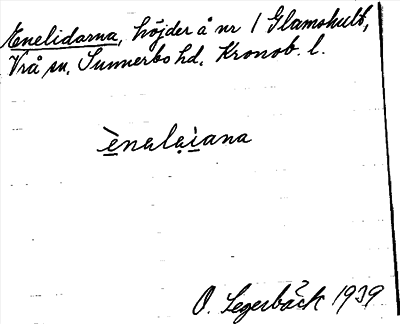 Enelidarna, höjder å nr 1 Glamshult,
Vrå sn, Sunnerbo hd, Kronob. l.
ènalạìana
O. Segerbäck 1939